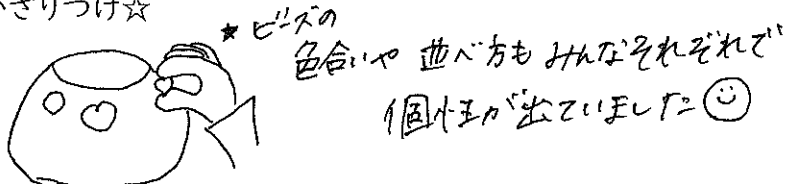 ざりつけ☆
★ ビーズの
色合いや 並べ方も みんなそれぞれで
個性が出ていました